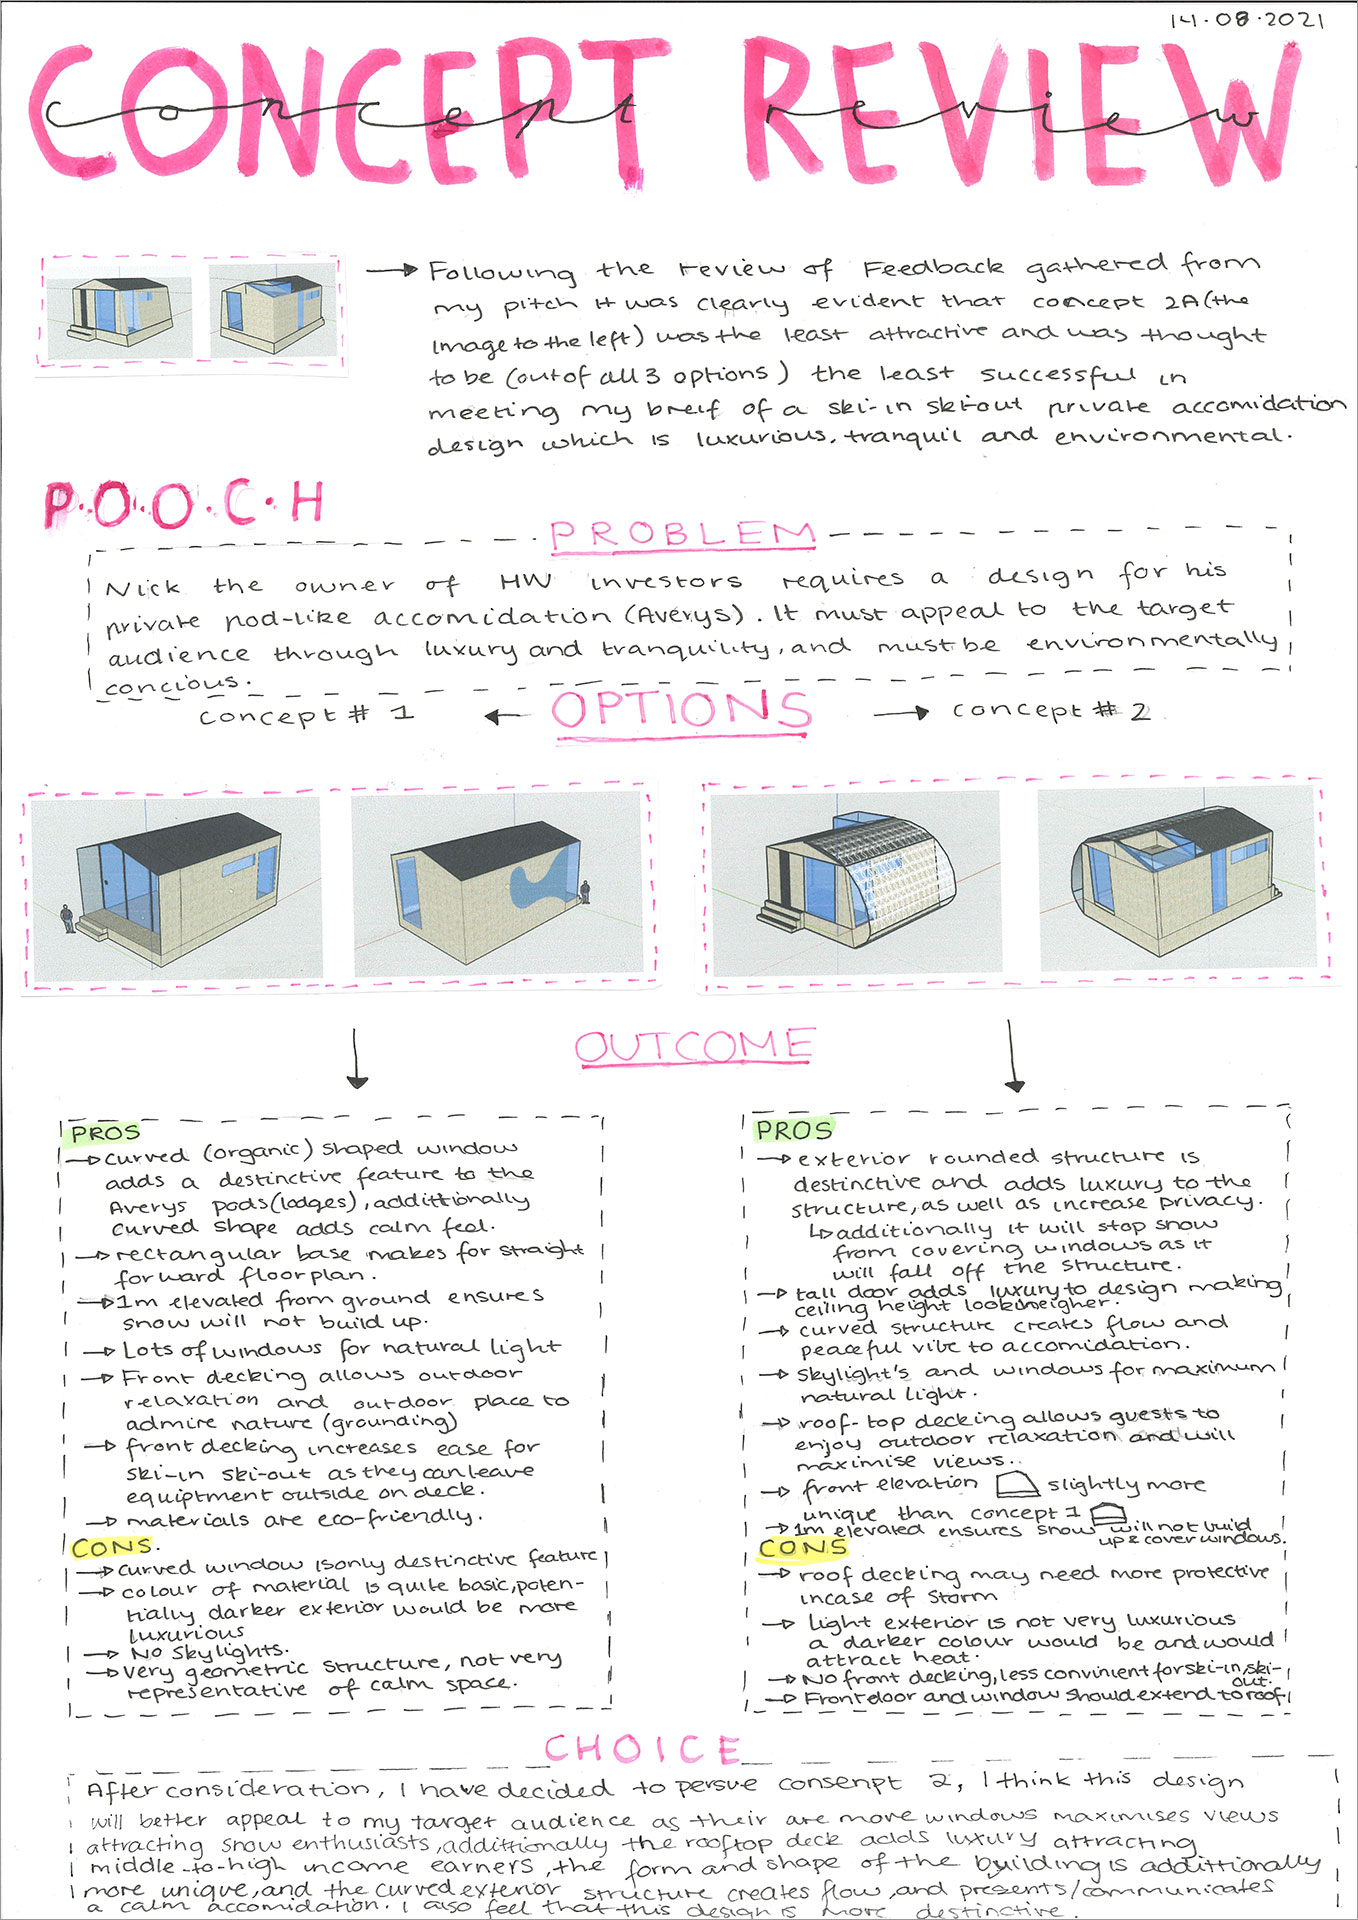 14.08.2021
CONCEPT REVIEW
concept review
Following the review of Feedback gathered from
my pitch it was clearly evident that concept 2A (the
image to the left) was the least attractive and was thought
to be (out of all 3 options) the least successful in
meeting my breif of a ski-in ski-out private accomidation
design which is luxurious, tranquil and environmental.
P.O.O.C.H
PROBLEM
Nick the owner of HW investors requires a design for his
private pod-like accomidation (Averys). It must appeal to the target
audience through luxury and tranquility, and must be environmentally
concious.
OPTIONS
concept # 1
concept # 2
OUTCOME
PROS
curved (organic) shaped window
adds a destinctive feature to the
Averys pods (lodges), addittionally
curved shape adds calm feel.
rectangular base makes for straight
forward floorplan.
1m elevated from ground ensures
snow will not build up.
Lots of windows for natural light
Front decking allows outdoor
relaxation and outdoor place to
admire nature (grounding)
front decking increases ease for
ski-in ski-out as they can leave
equiptment outside on deck.
materials are eco-friendly.
CONS.
curved window is only destinctive feature
colour of material is quite basic, poten-
tially darker exterior would be more
luxurious
No skylights.
very geometric structure, not very
representative of calm space.
PROS
exterior rounded structure is
destinctive and adds luxury to the
structure, as well as increase privacy.
additionally it will stop snow
from covering windows as it
will fall off the structure.
tall door adds luxury to design making
ceiling height look heigher.
curved structure creates flow and
peaceful vibe to accomidation.
skylight's and windows for maximum
natural light.
roof-top decking allows guests to
enjoy outdoor relaxation and will
maximise views.
front elevation slightly more
unique than concept 1
1m elevated ensures snow will not build
up & cover windows.
CONS
roof decking may need more protective
incase of storm
Light exterior is not very luxurious
a darker colour would be and would
attract heat.
No front decking, less convinient for ski-in, ski-
out.
Front door and window should extend to roof.
CHOICE
After consideration, I have decided to persue consenpt 2, I think this design
will better appeal to my target audience as their are more windows maximises views
attracting snow enthusiasts, addittionally the rooftop deck adds luxury attracting
middle-to-high income earners, the form and shape of the building is addittionally
more unique, and the curved exterior structure creates flow, and presents/communicates
a calm accomidation. I also feel that this design is more destinctive.